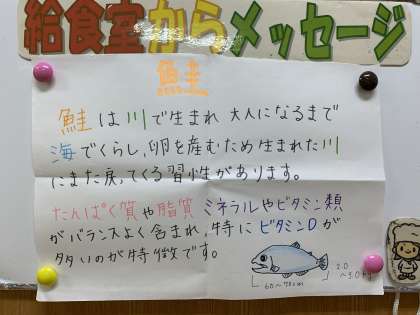 給食室からメッセージ
鮭
鮭は川で生まれ大人になるまで
海でくらし、卵を産むため生まれた川
にまた戻ってくる習性があります。
たんぱく質や脂質ミネラルやビタミン類
がバランスよく含まれ、特にビタミンDが
多いのが特徴です。
60～70cm
2.0